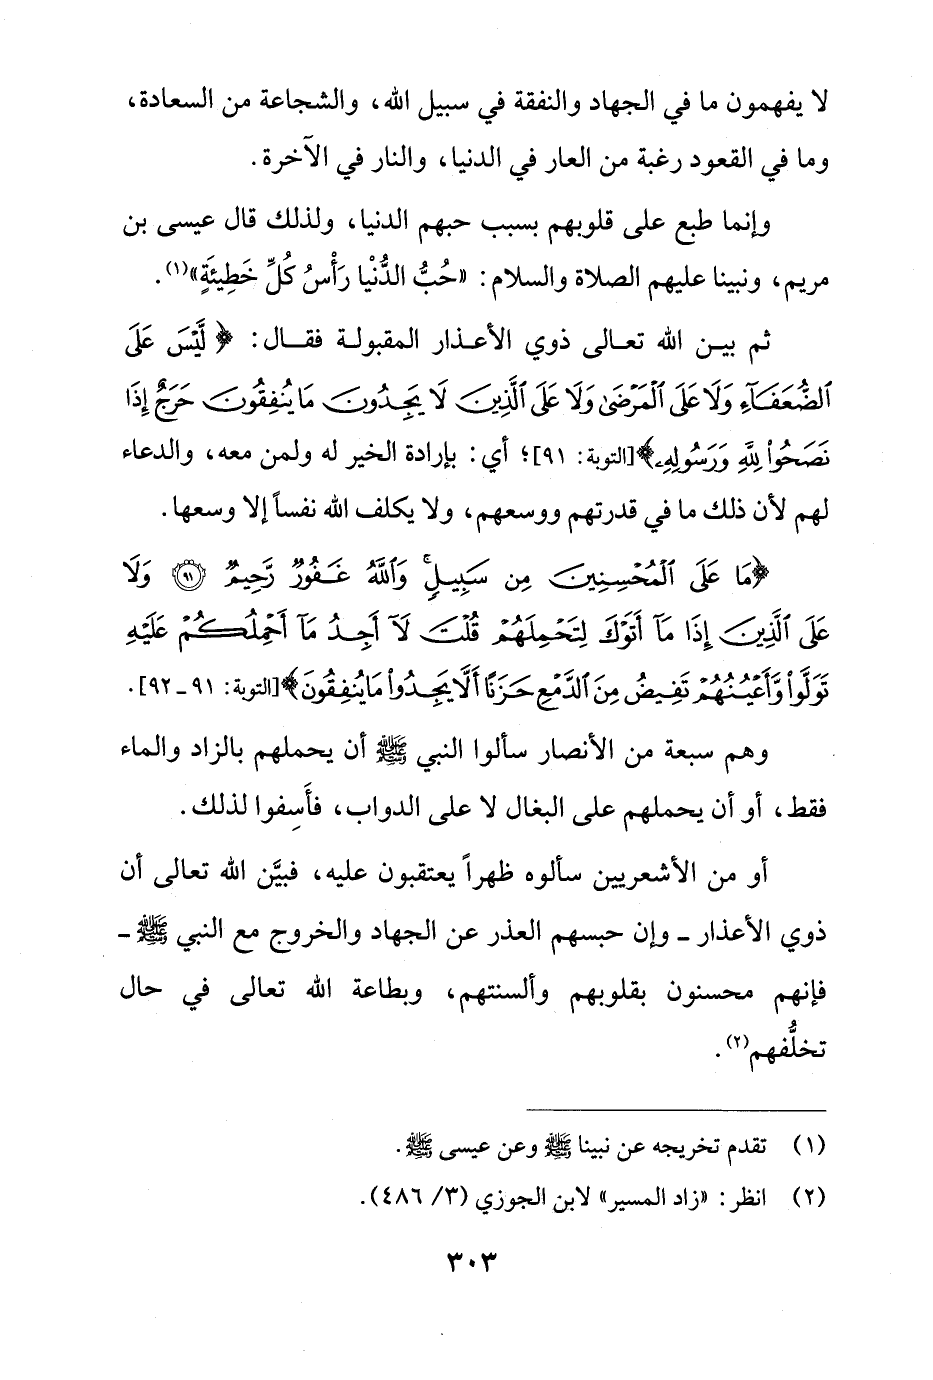 لا يفهمون ما في الجهاد والنفقة في سبيل الله، والشجاعة من السعادة،
وما في القعود رغبة من العار في الدنيا، والنار في الآخرة.
وإنما طبع على قلوبهم بسبب حبهم الدنيا، ولذلك قال عيسى بن
مريم، ونبينا عليهم الصلاة والسلام: «حُبُّ الدُّنْيا رَأْسُ كُلِّ خَطِيئَةٍ»(١).
ثم بين الله تعالى ذوي الأعذار المقبولة فقال: ﴿لَّيْسَ عَلَى
ٱلضُّعَفَآءِ وَلَا عَلَى ٱلْمَرْضَىٰ وَلَا عَلَى ٱلَّذِينَ لَا يَجِدُونَ مَا يُنفِقُونَ حَرَجٌ إِذَا
نَصَحُوا۟ لِلَّهِ وَرَسُولِهِۦ﴾[التوبة: ٩١]؛ أي: بإرادة الخير له ولمن معه، والدعاء
لهم لأن ذلك ما في قدرتهم ووسعهم، ولا يكلف الله نفساً إلا وسعها.
﴿مَا عَلَى ٱلْمُحْسِنِينَ مِن سَبِيلٍۚ وَٱللَّهُ غَفُورٌ رَّحِيمٌ ۝٩١ وَلَا
عَلَى ٱلَّذِينَ إِذَا مَآ أَتَوْكَ لِتَحْمِلَهُمْ قُلْتَ لَآ أَجِدُ مَآ أَحْمِلُكُمْ عَلَيْهِ
تَوَلَّوا۟ وَّأَعْيُنُهُمْ تَفِيضُ مِنَ ٱلدَّمْعِ حَزَنًا أَلَّا يَجِدُوا۟ مَا يُنفِقُونَ﴾[التوبة: ٩١ـ٩٢].
وهم سبعة من الأنصار سألوا النبي ﷺ أن يحملهم بالزاد والماء
فقط، أو أن يحملهم على البغال لا على الدواب، فأَسِفوا لذلك.
أو من الأشعريين سألوه ظهراً يعتقبون عليه، فبيَّن الله تعالى أن
ذوي الأعذار ـ وإن حبسهم العذر عن الجهاد والخروج مع النبي ﷺ ـ
فإنهم محسنون بقلوبهم وألسنتهم، وبطاعة الله تعالى في حال
تخلُّفهم(٢).
(١) تقدم تخريجه عن نبينا ﷺ وعن عيسى ﷺ.
(٢) انظر: «زاد المسير» لابن الجوزي (٣/ ٤٨٦).
٣٠٣